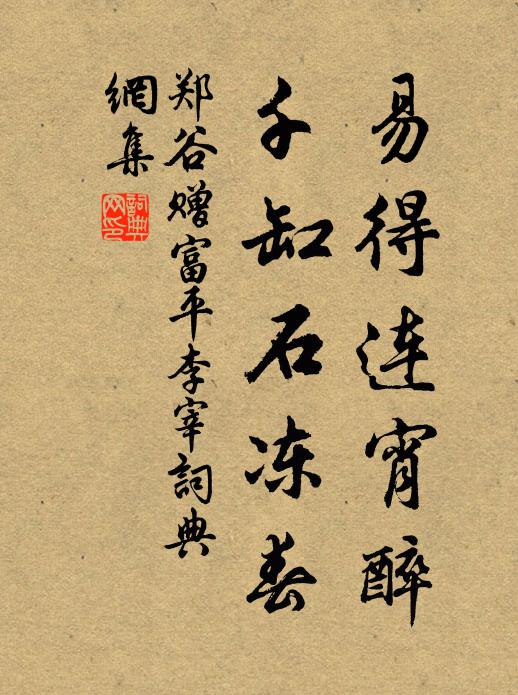 易得连宵醉
千缸石冻春
郑谷赠富平李宰詞典
網集
詞典
网印